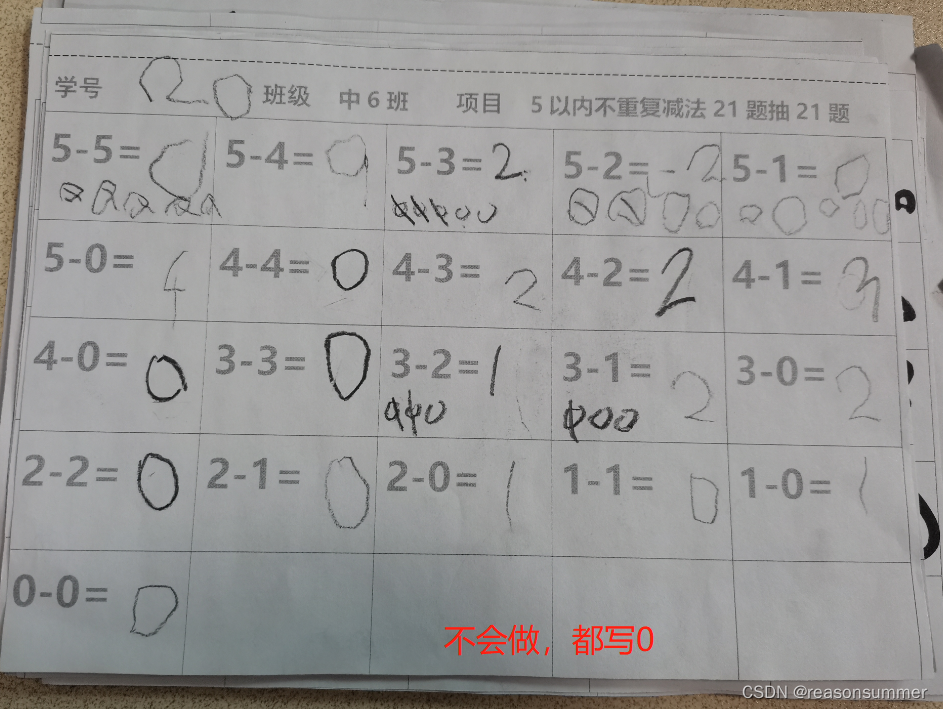 学号 20 班级 中6班 项目 5以内不重复减法21题抽21题
5-5=0 5-4=9 5-3=2 5-2=-2 5-1=0
5-0=4 4-4=0 4-3=2 4-2=2 4-1=3
4-0=0 3-3=0 3-2=1 3-1=2 3-0=2
2-2=0 2-1=0 2-0=1 1-1=0 1-0=1
0-0=0
不会做，都写0
CSDN @reasonsummer